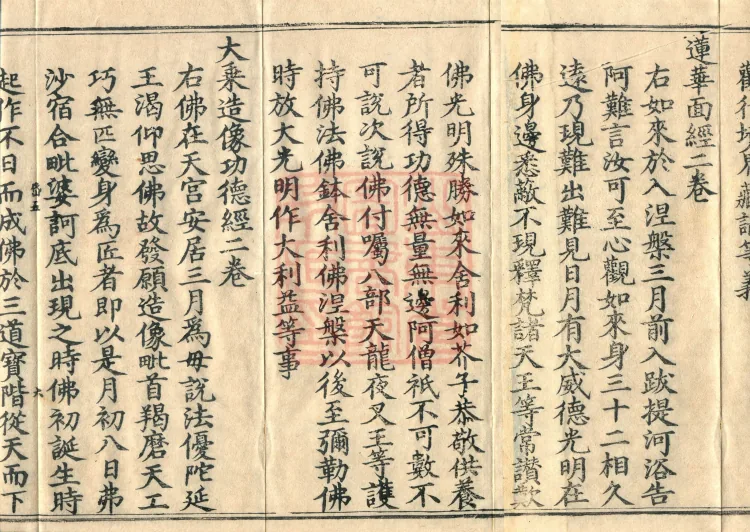 觀行
蓮華面經二卷
右如來於入涅槃三月前入跋提河浴告
阿難言汝可至心觀如來身三十二相久
遠乃現難出難見日月有大威德光明在
佛身邊悉蔽不現釋梵諸天王等常讃歎
佛光明殊勝如來舍利如芥子恭敬供養
者所得功德無量無邊阿僧祇不可數不
可說次說佛付囑八部天龍夜叉王等護
持佛法佛鉢舍利佛涅槃以後至彌勒佛
時放大光明作大利益等事
大乗造像功德經二卷
右佛在天宮安居三月為母說法優陀延
王渴仰思佛故發願造像毗首羯磨天工
巧無匹變身為匠者即以是月初八日弗
沙宿合毗婆訶底出現之時佛初誕生時
起作不日而成佛於三道寶階從天而下